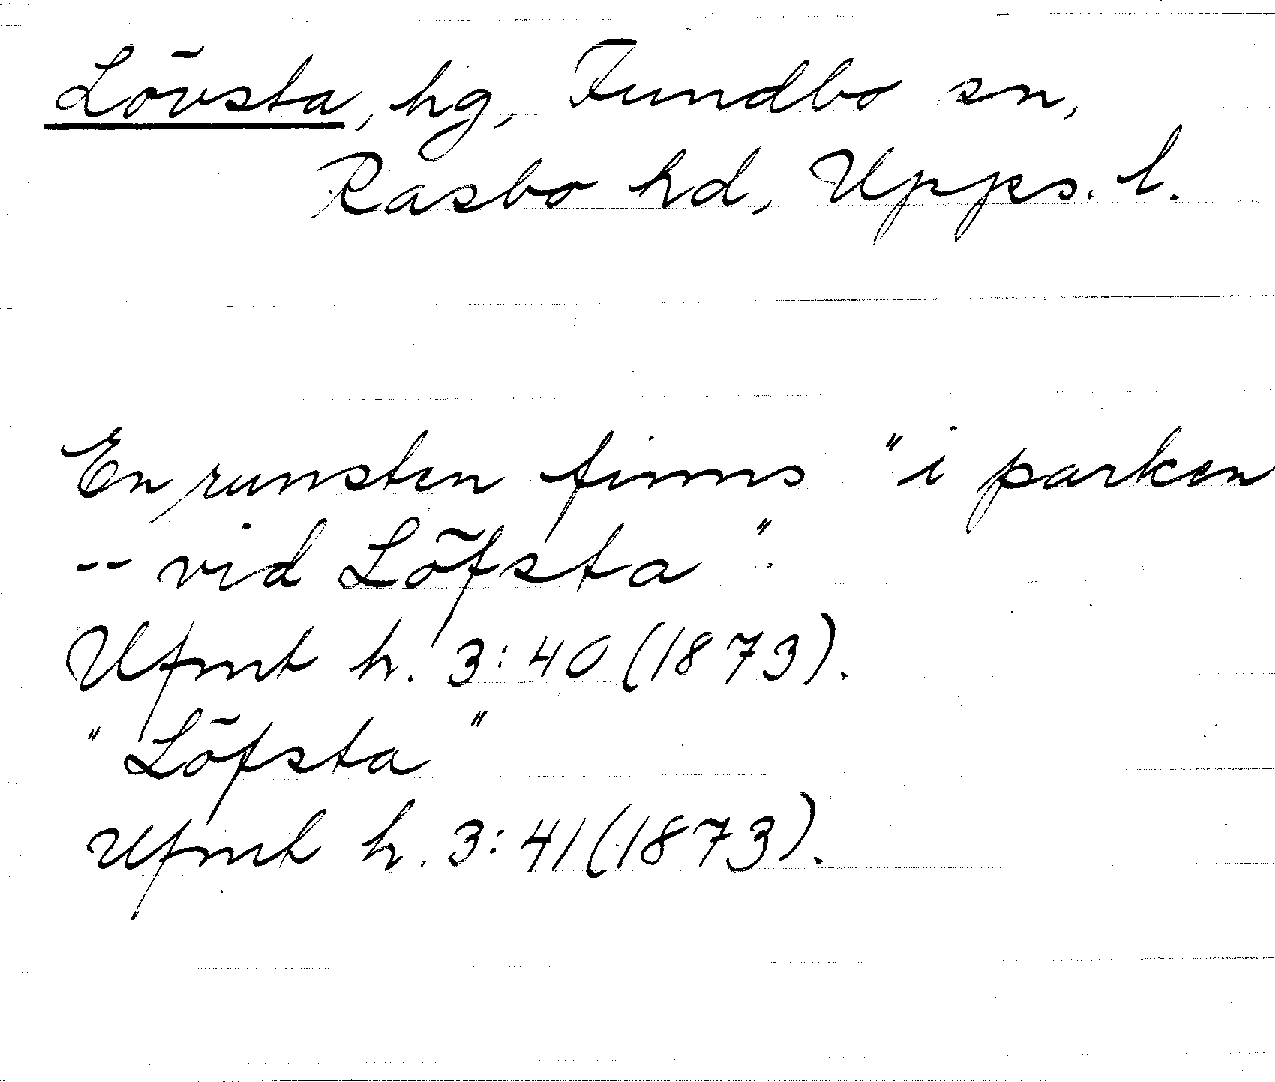 Lövsta, hg, Funbo sn,
Rasbo hd, Upps. l.
En runsten finns "i parken
-- vid Löfsta".
Ufmt h. 3:40 (1873).
"Löfsta"
Ufmt h. 3:41 (1873).